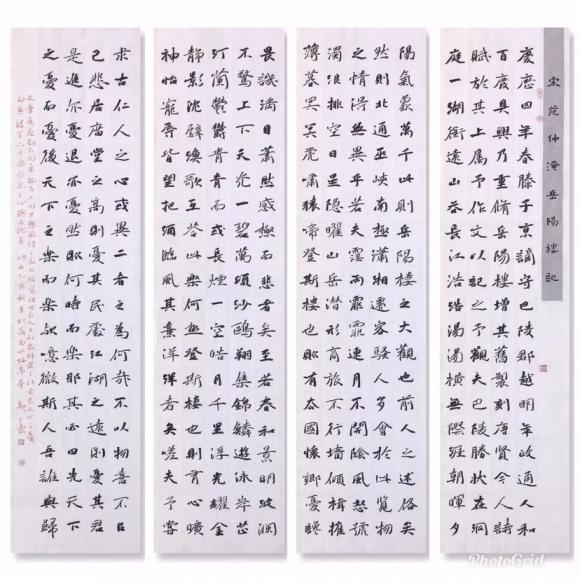 宋范仲淹岳陽樓記
慶曆四年春滕子京謫守巴陵郡越明年政通人和
百廢具興乃重脩岳陽樓增其舊製刻唐賢今人詩
賦於其上屬予作文以記之予觀夫巴陵勝狀在洞
庭一湖銜遠山吞長江浩浩湯湯橫無際涯朝暉夕
陽氣象萬千此則岳陽樓之大觀也前人之述備矣
然則北通巫峽南極瀟湘遷客騷人多會於此覽物
之情得無異乎若夫霪雨霏霏連月不開陰風怒號
濁浪排空日星隱曜山岳潛形商旅不行檣傾楫摧
薄暮冥冥虎嘯猿啼登斯樓也則有去國懷鄉憂讒
畏譏滿目蕭然感極而悲者矣至若春和景明波瀾
不驚上下天光一碧萬頃沙鷗翔集錦鱗游泳岸芷
汀蘭鬱鬱青青而或長煙一空皓月千里浮光耀金
靜影沈璧漁歌互答此樂何極登斯樓也則有心曠
神怡寵辱皆忘把酒臨風其喜洋洋者矣嗟夫予嘗
求古仁人之心或異二者之為何哉不以物喜不以
己悲居廟堂之高則憂其民處江湖之遠則憂其君
是進亦憂退亦憂然則何時而樂耶其必曰先天下
之憂而憂後天下之樂而樂歟噫微斯人吾誰與歸
PhotoGrid